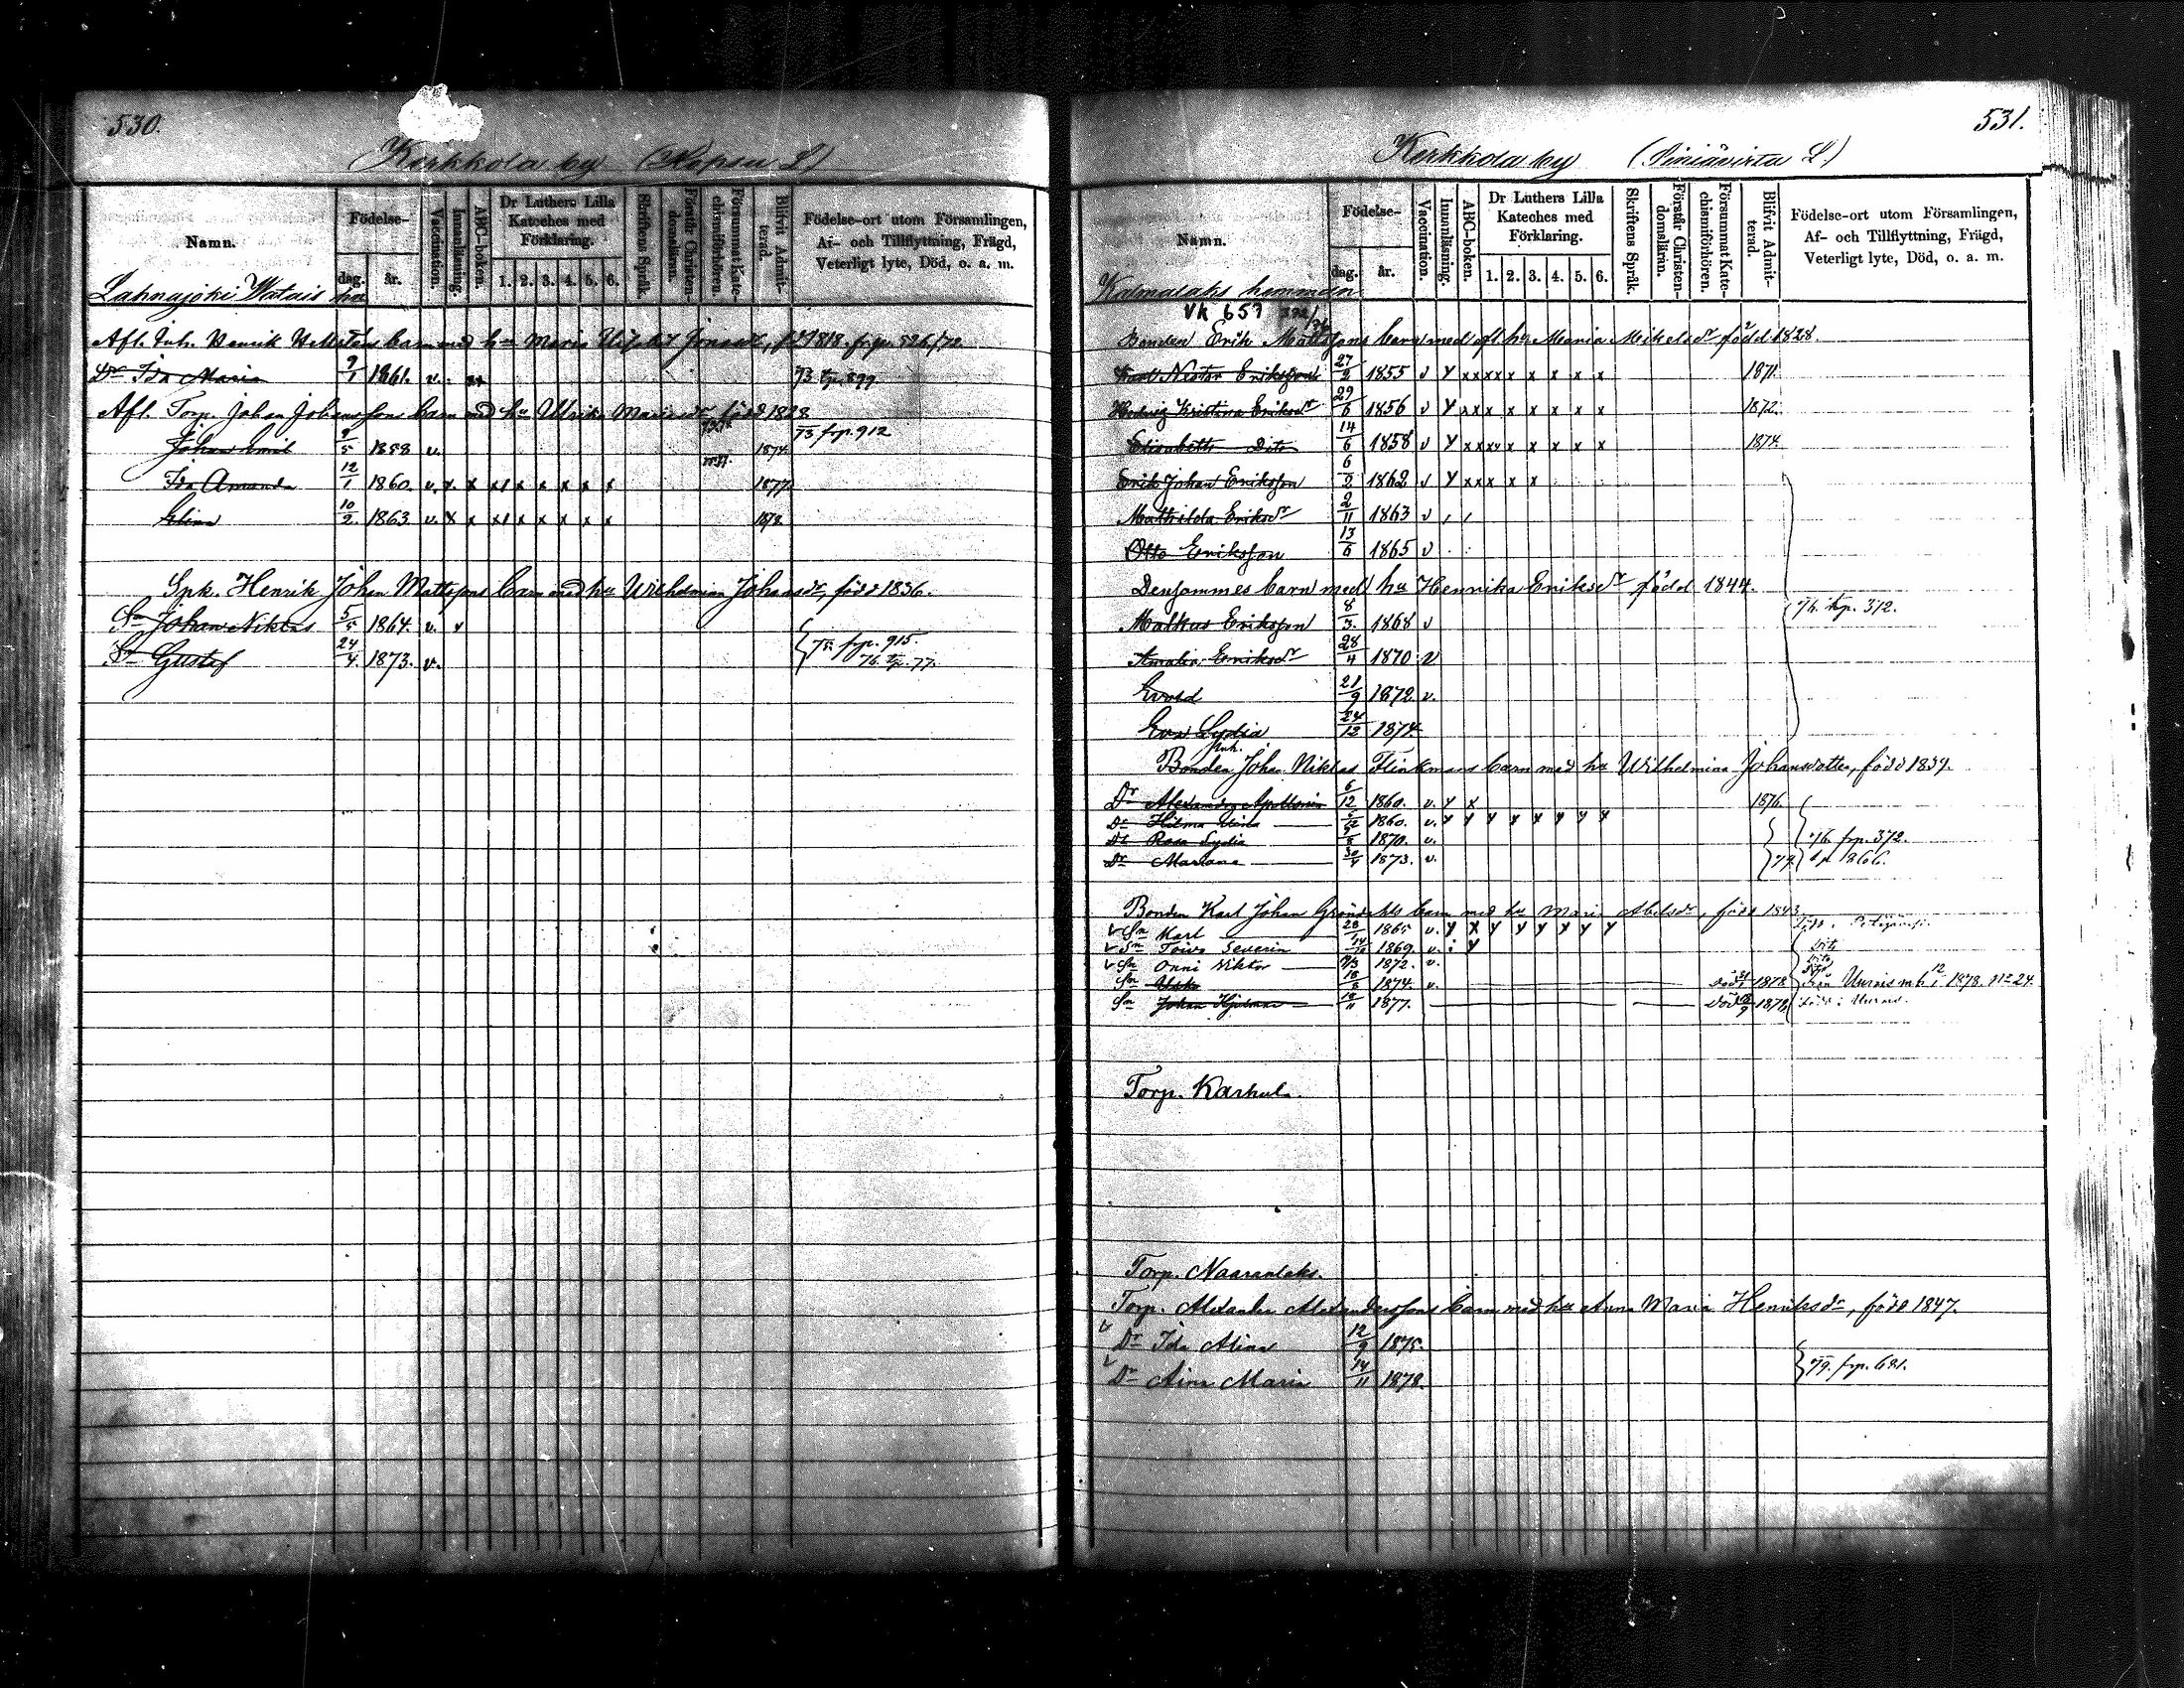 530.
Kerkkola by (Napsu L.)
Namn.
Födelse-
dag.
år.
Vaccination.
Innanläsning.
ABC-boken.
Dr Luthers Lilla Kateches med Förklaring.
1. 2. 3. 4. 5. 6.
Skriftens Språk.
Förstår Christendomslärän.
Försummat Katechismiförhören.
Blifvit Admitterad.
Födelse-ort utom Församlingen, Af- och Tillflyttning, Frägd, Veterligt lyte, Död, o. a. m.
Lahnajoki Watais
Afl. Inh. Henrik barn med hu Maria 1818. fr. p. 526/72
Dr Ida Maria 9/1 1861. v. 73 tp. 897.
Afl. Torp. Johan Johanssons barn med hu Ulrika Mariasdr född 1828.
Johan Emil 8/5 1858 v. 1874. 73 frp. 912
Ida Amanda 12/1 1860. v. x x x x x x x x 1877.
Elina 10/2. 1863 v. x x x x x x x x 1878.
Spk. Henrik Johan Mattssons barn med hu Wilhelmina Johansdr, född 1836.
Sn Johan Niklas 5/5 1864. v. v
Sn Gustef 24/4. 1873. v.
75. frp. 915.
76. tp. 77.
531.
Kerkkola by (Siniävirta L.)
Namn.
Födelse-
dag.
år.
Vaccination.
Innanläsning.
ABC-boken.
Dr Luthers Lilla Kateches med Förklaring.
1. 2. 3. 4. 5. 6.
Skriftens Språk.
Förstår Christendomslärän.
Försummat Katechismiförhören.
Blifvit Admitterad.
Födelse-ort utom Församlingen, Af- och Tillflyttning, Frägd, Veterligt lyte, Död, o. a. m.
Kalmalaks hemman
Vk 657
Bonden Erik Mattssons barn med afl. hu Maria Mikelsdr född 1828.
Karl Nestor Eriksson 27/2 1855 v y x x x x x x x x 1871
Hedvig Kristina Eriksdr 29/6 1856 v y x x x x x x x x 1872.
Elisabeth Dito 14/6 1858 v y x x x x x x x x 1874.
Erik Johan Eriksson 6/2 1862 v y x x x x x
Mathilda Eriksdr 2/11 1863 v
Otto Eriksson 13/6 1865 v
Densammes barn med hu Henrika Eriksdr född 1844.
76. tp. 372.
Malkus Eriksson 8/3. 1868 v
Amalia Eriksdr 28/4 1870 v
Evald 21/9 1872 v.
Eva Lydia 24/12 1874
Inh.
Bonden Johan Niklas Flinkmans barn med hu Wilhelmina Johansdotter, född 1839.
Dr Alexandra Apollonia 6/12 1860. v. y x 1876.
Dr Hilma 1860. v. y y y y y y y y
Dr Rosa Lydia 1870. v. 76. frp. 372.
Dr Mariana 30/4 1873. v. 79 tp 866.
Bonden Karl Johan Gröndahls barn med hu Maria Abelsdr, född 1843
Sn Karl 1865 v. y x y y y y y y
Sn Toivo Severin 1869. v. i y dito
Sn Onni Viktor 9/3 1872. v. dito
Sn Usko 18/8 1874. v. död 1878 från m. b. 12/1 1878. No 24.
Sn Johan Hjalmar 18/11 1877. död 1878
Torp. Karhul.
Torp. Naaranlaks.
Torp. Alexander Alexanderssons barn med hu Anna Maria Henriksdr, född 1847.
Dr Ida Alina 12/9 1875.
Dr Aina Maria 14/11 1878. 79. frp. 681.